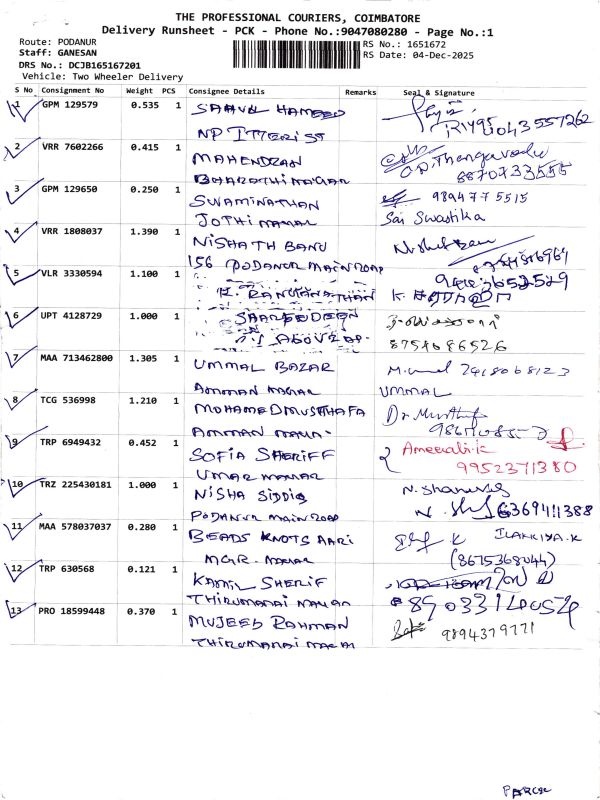 THE PROFESSIONAL COURIERS, COIMBATORE
Delivery Runsheet - PCK - Phone No.:9047080280 - Page No.:1
Route: PODANUR
Staff: GANESAN
DRS No.: DCJB165167201
Vehicle: Two Wheeler Delivery
RS No.: 1651672
RS Date: 04-Dec-2025
S No Consignment No Weight PCS Consignee Details Remarks Seal & Signature
1 GPM 129579 0.535 1 SAHUL HAMEED
NP ITTERI ST
2 VRR 7602266 0.415 1 MAHENDRAN
BHARATHI NAGAR 8870733555
3 GPM 129650 0.250 1 SWAMINATHAN 9894775515
JOTHI NAGAR Sai Swastika
4 VRR 1808037 1.390 1 NISHATH BANU
156 PODANUR MAIN ROAD
5 VLR 3330594 1.100 1 K. RANGANATHAN
6 UPT 4128729 1.000 1
8754686526
7 MAA 713462800 1.305 1 UMMAL BAZAR
AMMAN NAGAR UMMAL
8 TCG 536998 1.210 1 MOHAMED MUSTHAFA
AMMAN NAGAR
9 TRP 6949432 0.452 1 SOFIA SHERIFF
UMAR NAGAR 9952371380
10 TRZ 225430181 1.000 1 NISHA SIDDIQ
PODANUR MAIN ROAD 6369411388
11 MAA 578037037 0.280 1 BEADS KNOTS AARI ILAKKIYA.K
MGR. NAGAR (8675368044)
12 TRP 630568 0.121 1 KAMIL SHERIF
THIRUMARAI NAGAR
13 PRO 18599448 0.370 1 MUJEEB RAHMAN 9894379771
THIRUMARAI NAGAR
PARCEL